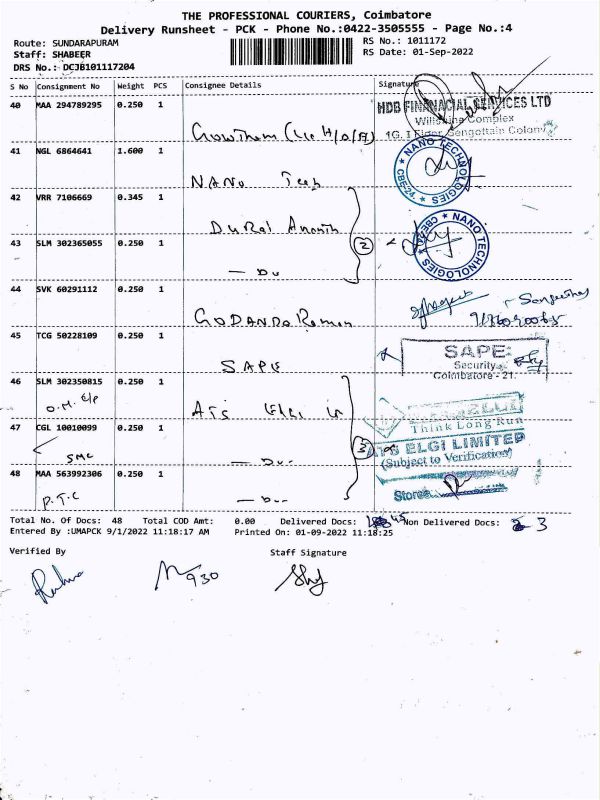 THE PROFESSIONAL COURIERS, Coimbatore
Delivery Runsheet - PCK - Phone No.:0422-3505555 - Page No.:4
Route: SUNDARAPURAM
RS No.: 1011172
Staff: SHABEER
RS Date: 01-Sep-2022
DRS No.: DCJB101117204
S No Consignment No Weight PCS Consignee Details Signature
40 MAA 294789295 0.250 1
HDB FINANACIAL SERVICES LTD
Complex
Sengottain Colony
41 NGL 6864641 1.600 1
NANO Tech
NANO TECHNOLOGIES
CBE-24.
42 VRR 7106669 0.345 1
DuRai
2
NANO TECHNOLOGIES
43 SLM 302365055 0.250 1
— Do
44 SVK 60291112 0.250 1
GODANDA Raman
45 TCG 50228109 0.250 1
SAPE
SAPE
Security
Coimbatore - 21.
46 SLM 302350815 0.250 1
ATS Elgi
Think Long Run
47 CGL 10010099 0.250 1
SMC
— Do
3
ATS ELGI LIMITED
(Subject to Verification)
48 MAA 563992306 0.250 1
P.T.C
— Do
Stores
Total No. Of Docs: 48 Total COD Amt: 0.00 Delivered Docs: 45 Non Delivered Docs: 3
Entered By :UMAPCK 9/1/2022 11:18:17 AM Printed On: 01-09-2022 11:18:25
Verified By Staff Signature
930